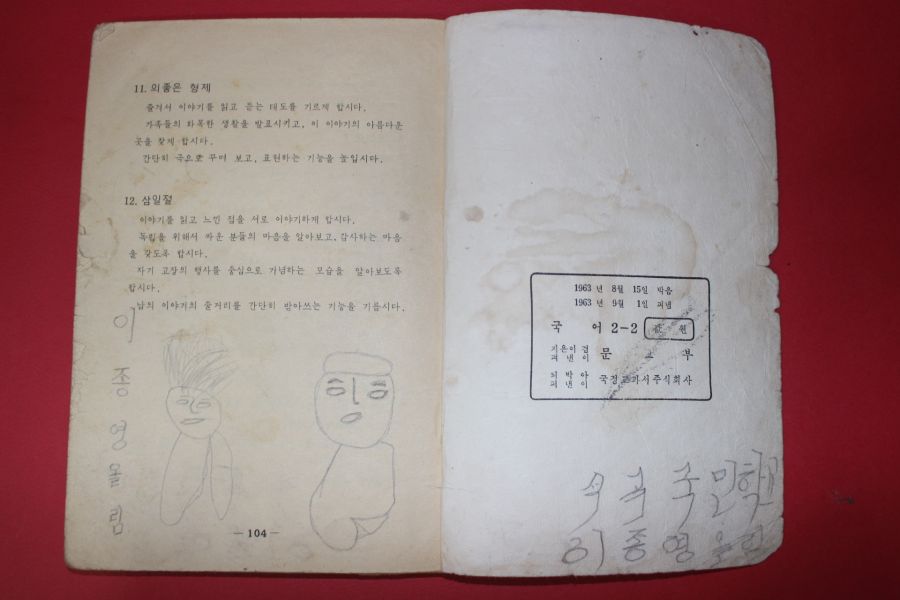 11. 의좋은 형제
즐겨서 이야기를 읽고 듣는 태도를 기르게 합시다.
가족들의 화목한 생활을 발표시키고, 이 이야기의 아름다운
곳을 찾게 합시다.
간단히 극으로 꾸며 보고, 표현하는 기능을 높입시다.
12. 삼일절
이야기를 읽고 느낀 점을 서로 이야기하게 합시다.
독립을 위해서 싸운 분들의 마음을 알아보고, 감사하는 마음
을 갖도록 합시다.
자기 고장의 행사를 중심으로 기념하는 모습을 알아보도록
합시다.
남의 이야기의 줄거리를 간단히 받아쓰는 기능을 기릅시다.
이종영올림
— 104 —
1963 년 8월 15일 박음
1963 년 9월 1일 펴냄
국 어 2-2
원
지은이 겸
펴낸이 문교부
박아
펴낸이 국정교과서주식회사
국민학교
이종영올림